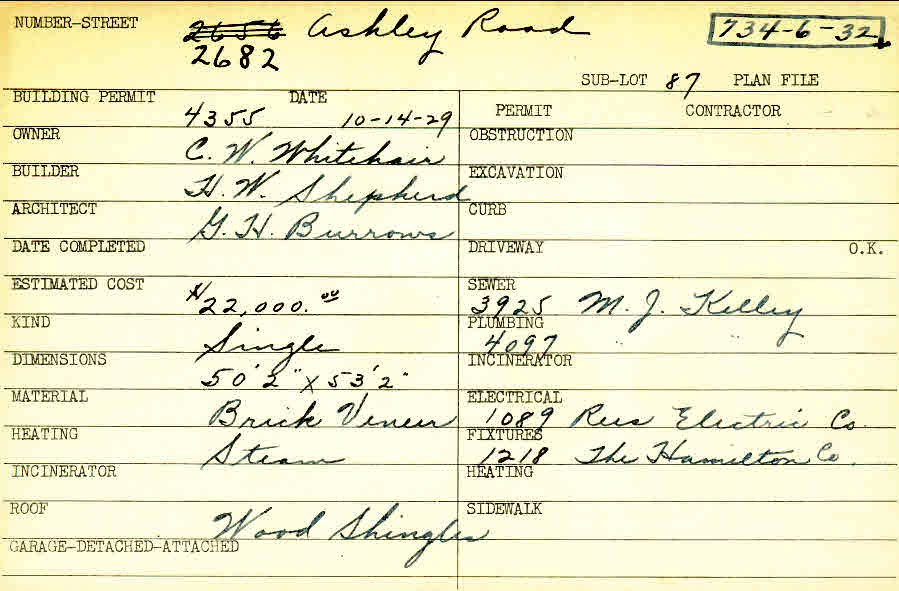 NUMBER-STREET 2656 Ashley Road 734-6-32
2682
SUB-LOT 87 PLAN FILE
BUILDING PERMIT 4355 DATE 10-14-29
PERMIT CONTRACTOR
OWNER C. W. Whitehair
OBSTRUCTION
BUILDER H. W. Shepherd
EXCAVATION
ARCHITECT G. H. Burrows
CURB
DATE COMPLETED
DRIVEWAY O.K.
ESTIMATED COST $22,000.00
SEWER 3925 M. J. Kelley
KIND Single
PLUMBING 4097
DIMENSIONS 50'2" x 53'2"
INCINERATOR
MATERIAL Brick Veneer
ELECTRICAL 1089 Rees Electric Co.
HEATING Steam
FIXTURES 1218 The Hamilton Co.
INCINERATOR
HEATING
ROOF Wood Shingles
SIDEWALK
GARAGE-DETACHED-ATTACHED